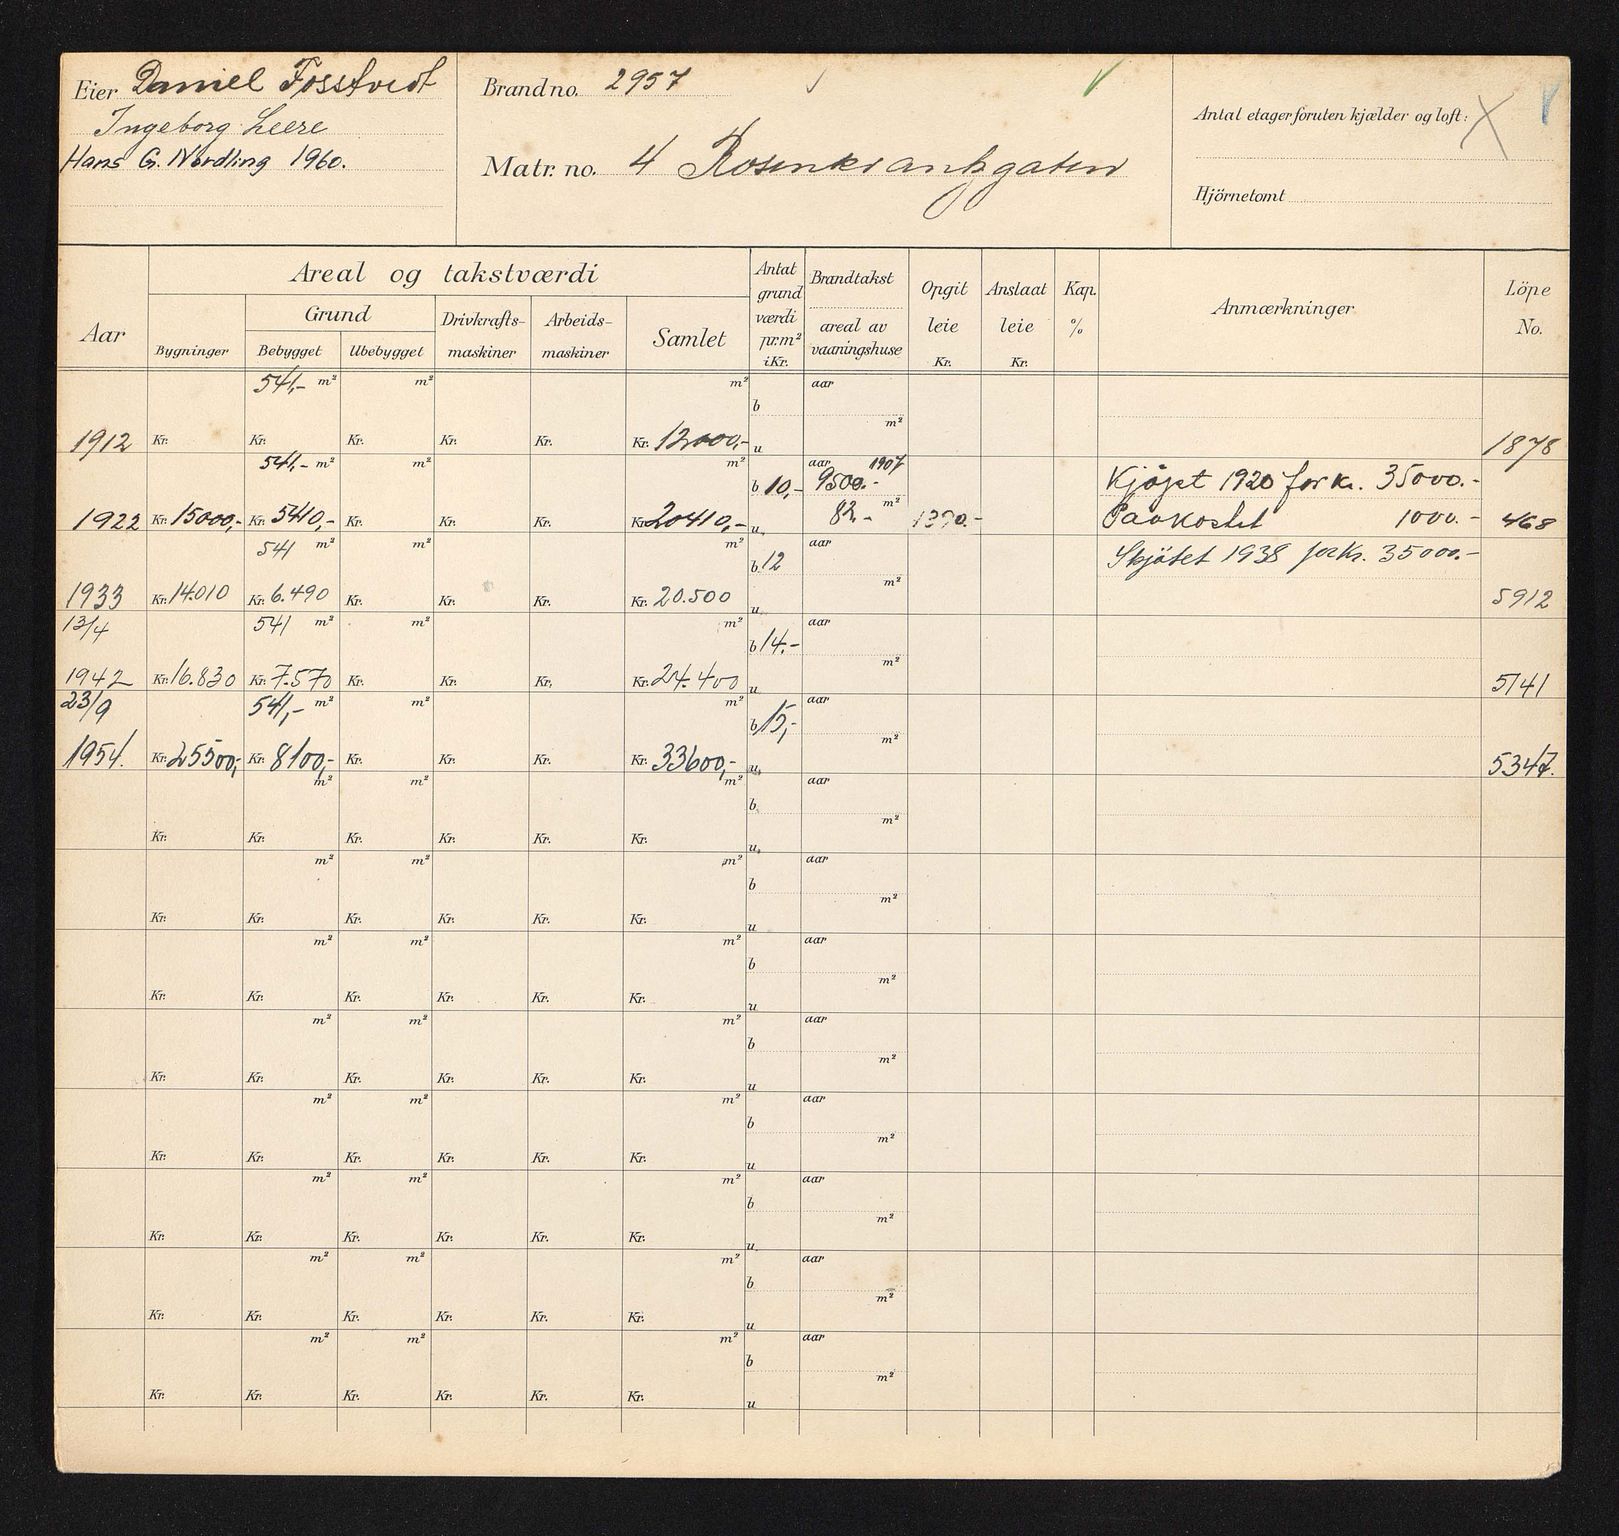 Eier Daniel Fosstvedt
Ingeborg Leere
Hans G. Nordling 1960.
Brandno. 2957
Matr. no. 4 Rosenkrantzgaten
Antal etager foruten kjælder og loft: X
Hjörnetomt
Aar
Areal og takstværdi
Bygninger
Grund
Bebygget
Ubebygget
Drivkrafts-
maskiner
Arbeids-
maskiner
Samlet
Antat
grund
værdi
pr.m²
i Kr.
Brandtakst
areal av
vaaningshuse
Opgit
leie
Kr.
Anslaat
leie
Kr.
Kap.
%
Anmærkninger
Löpe
No.
541,- m² m² m² aar
b
m²
1912 Kr. Kr. Kr. Kr. Kr. Kr. 12000,- u 1878
541,- m² m² m² aar 1907
b 10,- 9500.- Kjøpt 1920 for kr. 35000.-
82.- m²
1922 Kr. 15000,- Kr. 5410,- Kr. Kr. Kr. Kr. 20410,- u 1390.- Paakostet 1000.- 468
541 m² m² m² aar Skjøtet 1938 for Kr. 35000.-
b 12
m²
1933 Kr. 14.010 Kr. 6.490 Kr. Kr. Kr. Kr. 20.500 u 5912
13/4 541 m² m² m² aar
b 14.-
m²
1942 Kr. 16.830 Kr. 7.570 Kr. Kr. Kr. Kr. 24.400 u 5141
23/9 541,- m² m² m² aar
b 15,-
m²
1954. Kr. 25500,- Kr. 8100,- Kr. Kr. Kr. Kr. 33600,- u 5347.
m² m² m² aar
b
m²
Kr. Kr. Kr. Kr. Kr. Kr. u
m² m² m² aar
b
m²
Kr. Kr. Kr. Kr. Kr. Kr. u
m² m² m² aar
b
m²
Kr. Kr. Kr. Kr. Kr. Kr. u
m² m² m² aar
b
m²
Kr. Kr. Kr. Kr. Kr. Kr. u
m² m² m² aar
b
m²
Kr. Kr. Kr. Kr. Kr. Kr. u
m² m² m² aar
b
m²
Kr. Kr. Kr. Kr. Kr. Kr. u
m² m² m² aar
b
m²
Kr. Kr. Kr. Kr. Kr. Kr. u
m² m² m² aar
b
m²
Kr. Kr. Kr. Kr. Kr. Kr. u